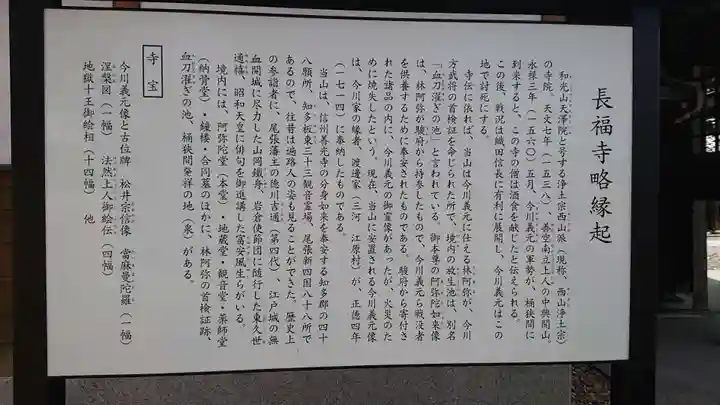 長福寺略縁起
和光山天澤院と号する浄土宗西山派(現称、西山浄土宗)
の寺院。天文七年(一五三八)、善空南立上人の中興開山。
永禄三年(一五六〇)五月、今川義元の軍勢が、桶狭間に
到来すると、この寺の僧は酒食を献じたと伝えられる。
この後、戦況は織田信長に有利に展開し、今川義元はこの
地で討死にする。
寺伝に依れば、当山は今川義元に仕える林阿弥が、今川
方武将の首検証を命じられた所で、境内の放生池は、別名
「血刀濯ぎの池」と言われている。御本尊の阿弥陀如来像
は、林阿弥が駿府から持参したもので、今川義元ら戦没者
を供養するために奉安されたものである。駿府から寄付さ
れた諸品の内に、今川義元の御霊像があったが、火災のた
めに焼失したという。現在、当山に安置される今川義元像
は、今川家の縁者、渡邊家(三河 江原村)が、正徳四年
(一七一四)に奉納したものである。
当山は、信州善光寺の分身如来を奉安する知多郡の四十
八願所、知多坂東三十三観音霊場、尾張新四国八十八所で
あるので、往昔は遍路人の姿も見ることができた。歴史上
の参詣者に、尾張藩主の徳川吉通(第四代)、江戸城の無
血開城に尽力した山岡鐵舟、岩倉使節団に随行した東久世
通禧、昭和天皇に俳句を御進講した富安風生らがいる。
境内には、阿弥陀堂(本堂)・地蔵堂・観音堂・薬師堂
(納骨堂)・鐘楼・合同墓のほかに、林阿弥の首検証跡、
血刀濯ぎの池、桶狭間発祥の地(泉)がある。
寺宝
今川義元像と古位牌 松井宗信像 當麻曼陀羅(一幅)
涅槃図(一幅) 法然上人御絵伝(四幅)
地獄十王御絵相(十四幅) 他